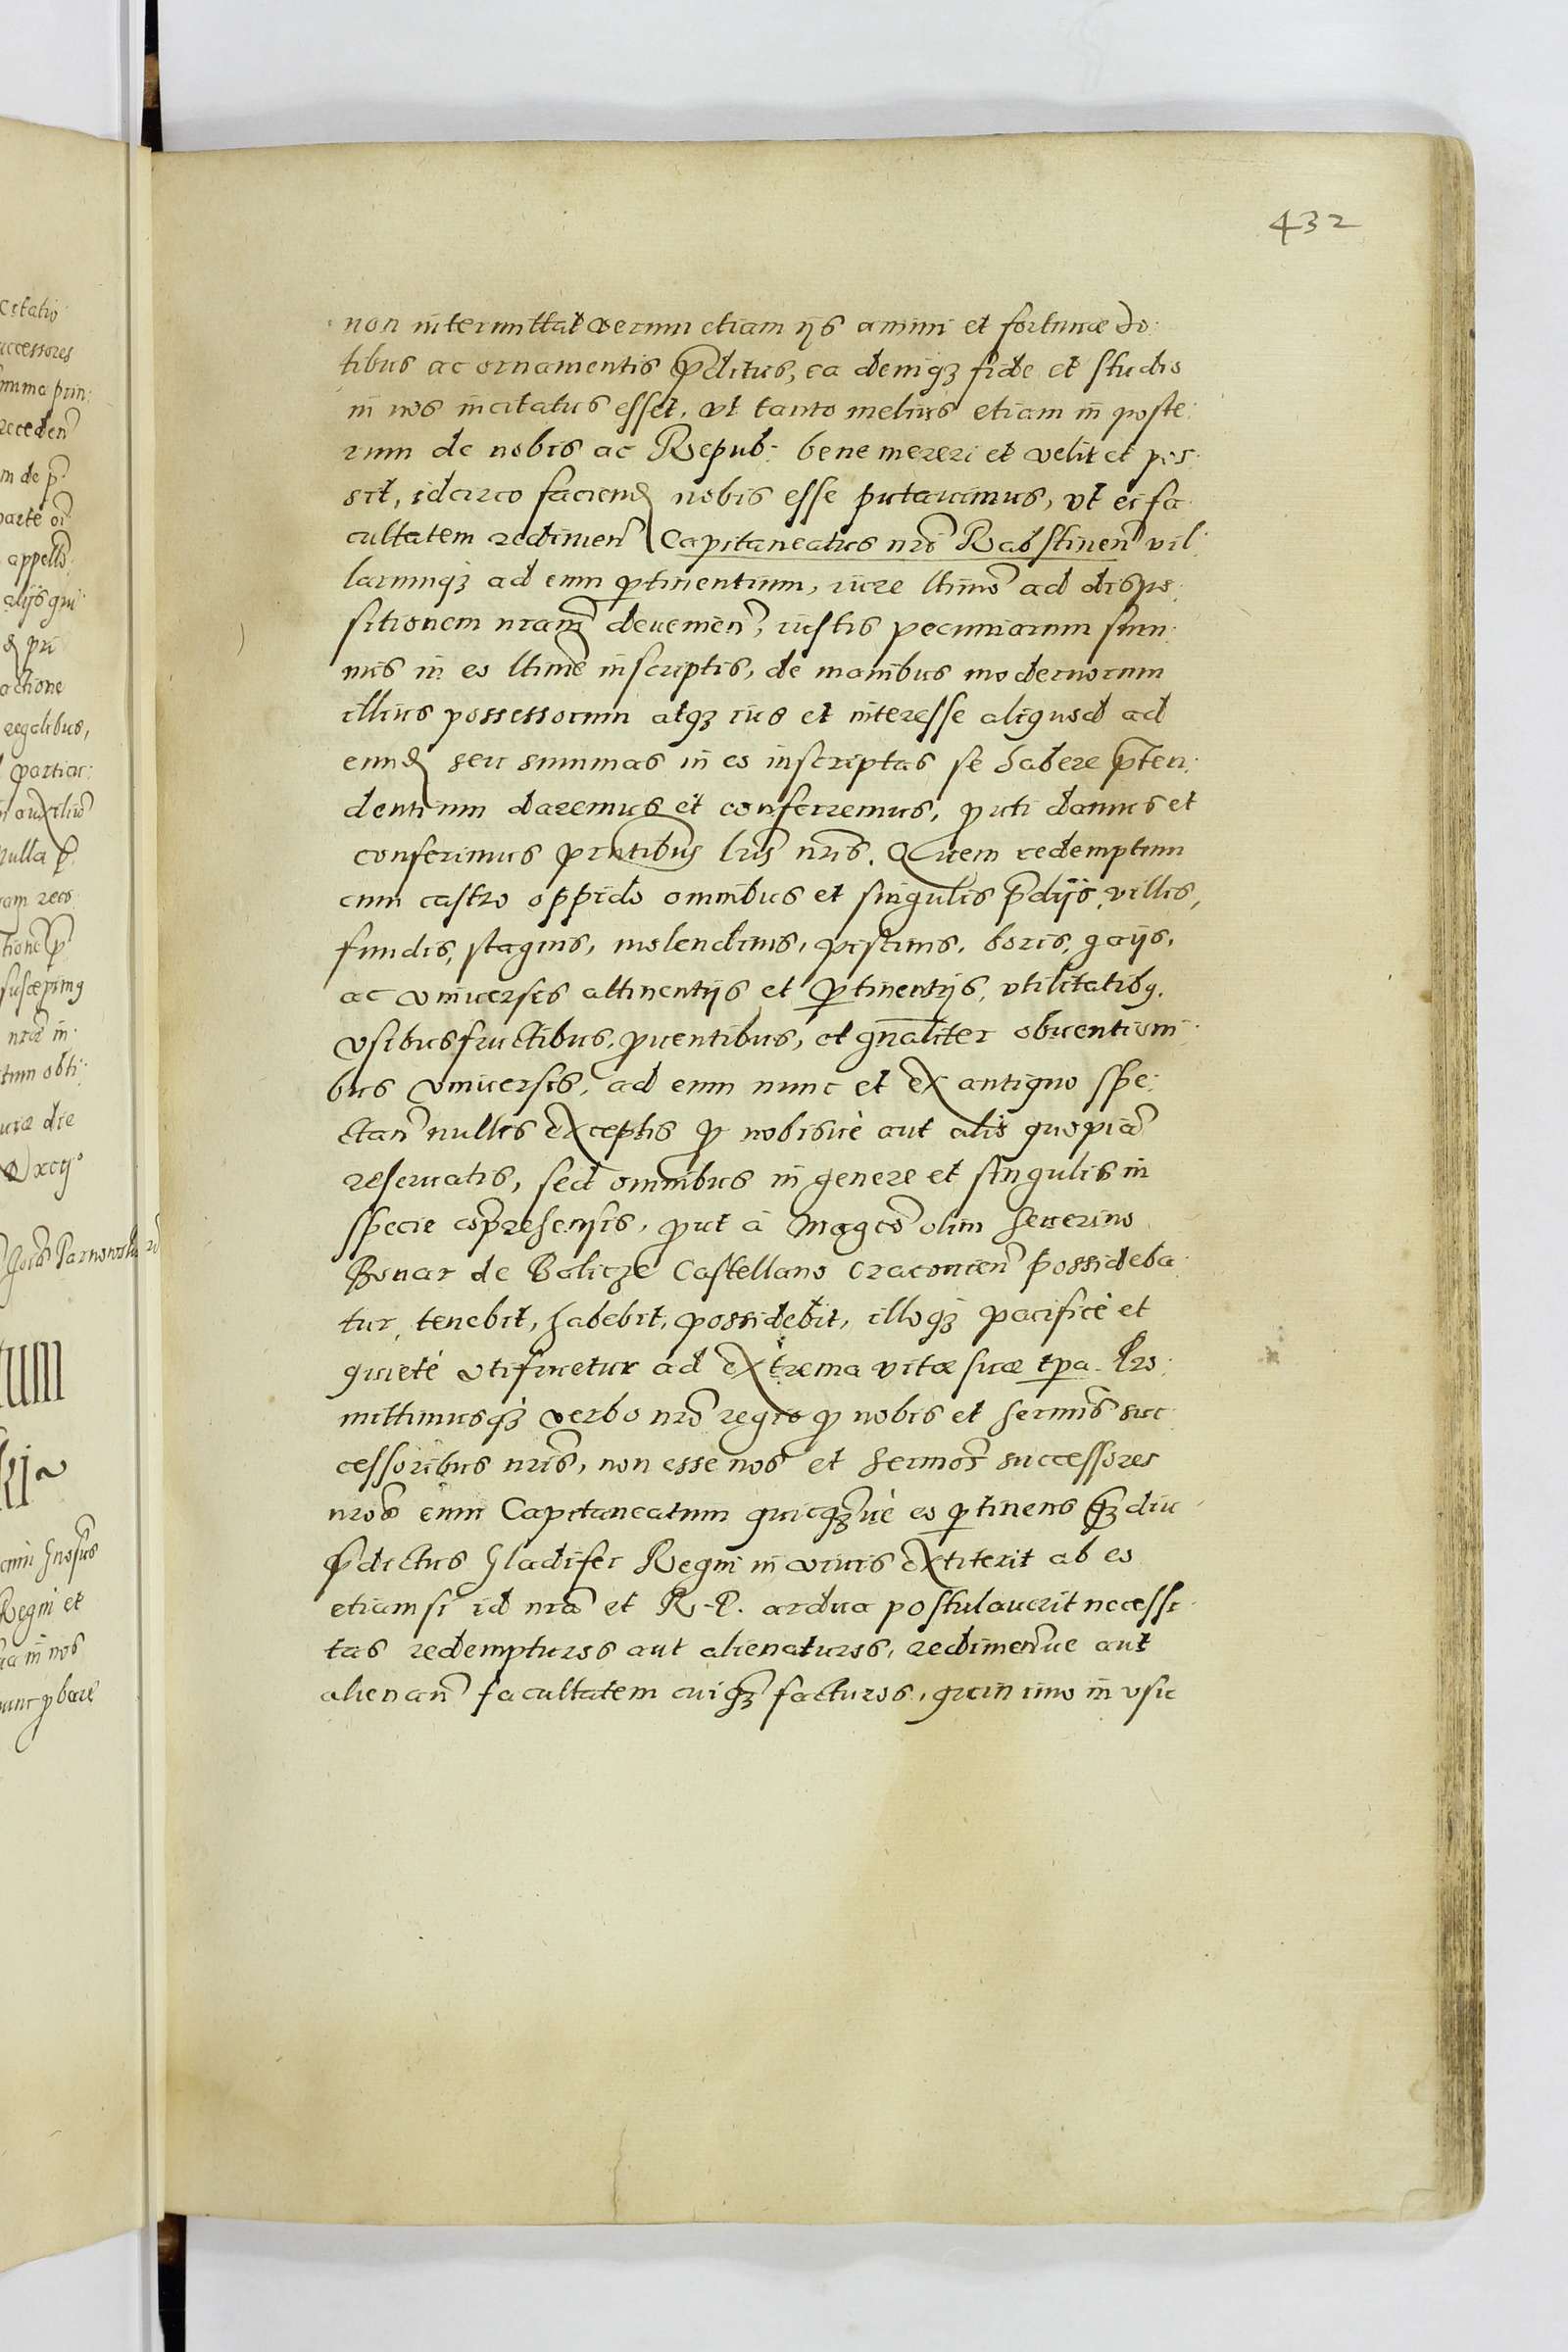 432
non intermittat verum etiam ijs animi et fortunæ do:
tibus ac ornamentis p̄ditus, ea deniqz fide et studio
in nos incitatus esset, vt tanto melius etiam in poste:
rum de nobis ac Repub: bene mereri et velit et pos:
sit, idcirco faciend nobis esse putauimus, vt ei fa
cultatem redimen̄ Capitaneatus nr̄i Rabstinen̄ vil:
larumqz ad eum ptinentium, iure ltimo ad dispo:
sitionem nram̄ deuemen̄, iustis pecuniarum sum:
mis in eo ltime inscriptis, de manibus modernorum
illius possessorum atqz ius et interesse aliquod ad
eund seu summas in eo inscriptas se habere p̄ten:
dentium daremus et conferremus, puti damus et
conferimus pn̄tibus lr̄is nr̄is. Quem redemptum
cum castro oppido omnibus et singulis p̄dijs, villis,
fundis, stagnis, molendinis, piscinis, boris, gaijs,
ac vniuersis attinentijs et ptinentijs, vtilitatibq,
vsibusfructibus, puentibus, et gn̄aliter obuentioni
bus vniuersis, ad eum nunc et ex antiquo spe:
ctan̄ nullis exceptis p nobisuè aut alio quopiā
reseruatis, sed omnibus in genere et singulis in
specie cōprehensis, put à Mag͠co olim Seuerino
Bonar de Balicze Castellano Cracouien̄ possideba:
tur, tenebit, habebit, possidebit, illoqz pacificè et
quietè vtifruetur ad extrema vitæ suæ tp̄a. Pro:
mittimusqz verbo nr̄o regio p nobis et Sermis suc:
cessoribus nr̄is, non esse nos et Sermos successores
nr̄os eum Capitaneatum quicqz̄uè eo ptinens q̄z diu
p̄dictus Gladifer Regni in viuis extiterit ab eo
etiamsi id nr̄a et R. P. ardua postulauerit necessi:
tas redempturos aut alienaturos, redimen̄ue aut
alienan̄ facultatem cuiq̄z facturos, quin imo in vsu